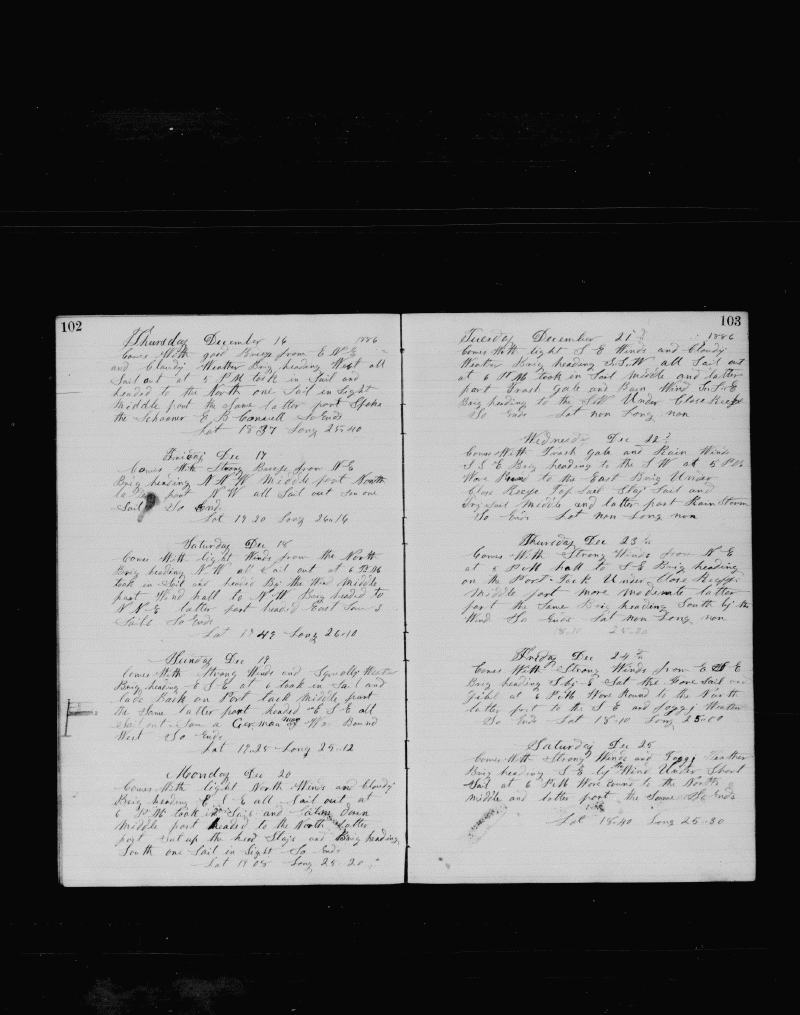 102
Thursday December 16 1886
Comes With good Breeze from E N E
and Cloudy Weather Brig heading West all
Sail out at 5 P M took in Sail and
headed to the North one Sail in Sight
Middle part the Same latter part Spoke
the Schooner E B Conwell So Ends
Lat 18 37 Long 25-40
Friday Dec 17
Comes With Strong Breeze from N E
Brig heading N N W Middle part North
latter part N W all Sail out Saw one
Sail So Ends
Lat 19 20 Long 26-16
Saturday Dec 18
Comes With light Winds from the North
Brig heading N W all Sail out at 6 P M
took in Sail and headed By the Wind Middle
part Wind hall to N W Brig headed to
N N E latter part headed East Saw 2
Sails So Ends
Lat 19 49 Long 26-10
Sunday Dec 19
Comes With Strong Winds and Squally Weather
Brig heading E S E at 6 took in Sail and
laid Back on Port tack Middle part
the Same latter part headed E S E all
Sail out Saw a German Bound
West So Ends
Lat 19-25 Long 25-12
Monday Dec 20
Comes With light North Winds and Cloudy
Brig heading E S E all Sail out at
6 P M took in Sail and down
Middle part headed to the North latter
part Set up the head Stays and Brig heading
South one Sail in Sight So Ends
Lat 19 08 Long 25-20
103
Tuesday December 21 1886
Comes With light S E Winds and Cloudy
Weather Brig heading S.S.W all Sail out
at 6 P M took in Sail Middle and latter
part Fresh Gale and Rain Wind S.S.E
Brig heading to the SW Under Close Reefs
So Ends Lat non Long non
Wednesday Dec 22
Comes With Fresh gale and Rain Wind
S S E Brig heading to the S W at 5 P M
Wore Round to the East Brig Under
Close Reefs Top Sail Stay Sail and
Try Sail Middle and latter part Rain Storm
So Ends Lat non Long non
Thursday Dec 23
Comes With Strong Winds from N E
at 5 P M hall to S E Brig heading
on the Port Tack Under Close Reefs
Middle part more Moderate latter
part the Same Brig heading South by the
Wind So Ends Lat non Long non
18-11 25-30
Friday Dec 24th
Comes With Strong Winds from E N E
Brig heading S by E Sat the Fore Sail and
Jibb at 6 P M Wore Round to the North
latter part to the S E and foggy Weather
So Ends Lat 18-10 Long 25-00
Saturday Dec 25
Comes With Strong Winds and Foggy Weather
Brig heading S E by the Wind Under Short
Sail at 6 P M Wore round to the North
Middle and latter part the Same So Ends
Lat 18-40 Long 25-30